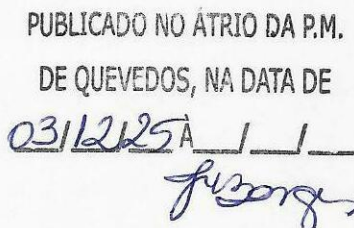 PUBLICADO NO ÁTRIO DA P.M.
DE QUEVEDOS, NA DATA DE
03/12/25 À __/__/__